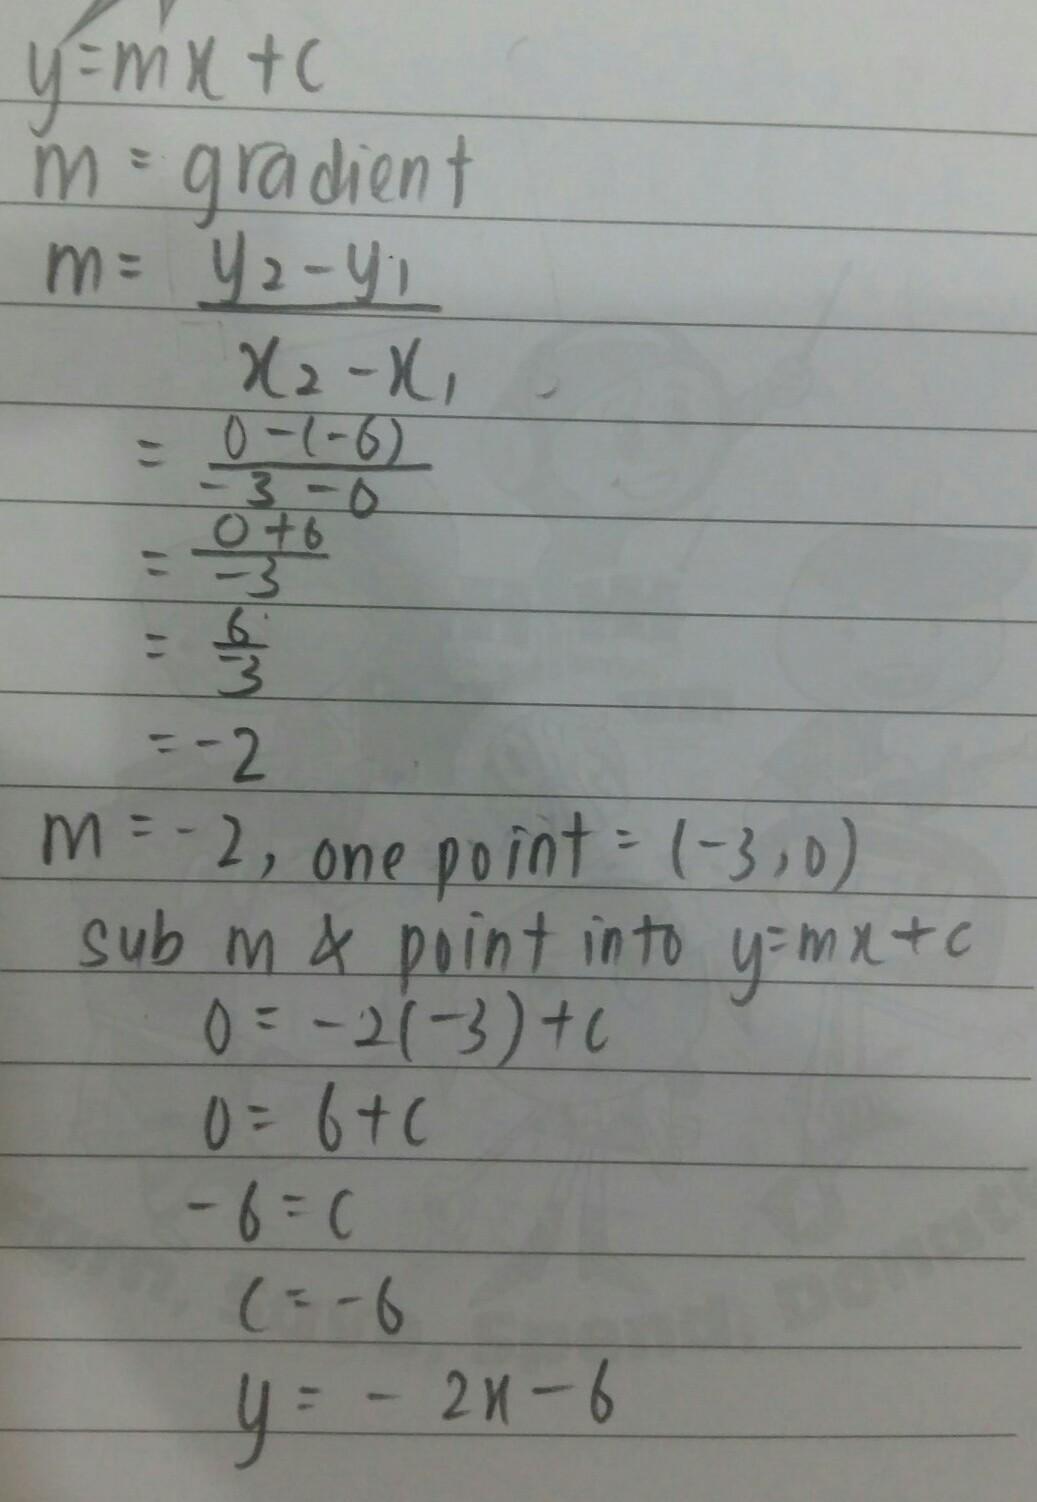 y=mx+c
m = gradient
m = y₂-y₁
x₂-x₁
= 0-(-6)
-3-0
= 0+6
-3
= 6
-3
=-2
m=-2, one point = (-3,0)
sub m & point into y=mx+c
0=-2(-3)+c
0=6+c
-6=c
c=-6
y=-2x-6